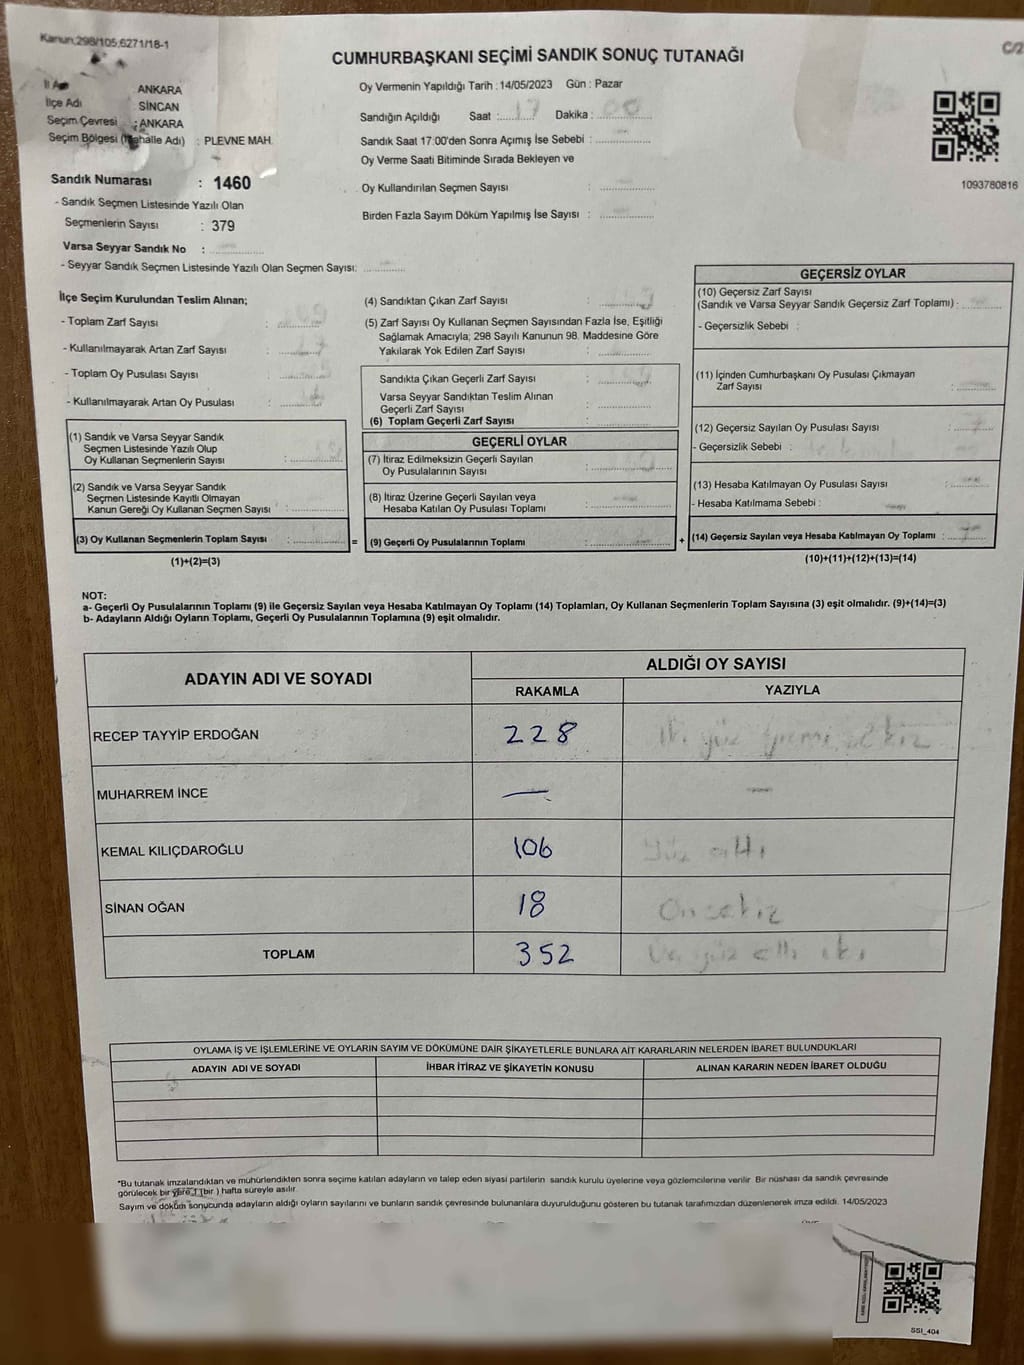 Kanun;298/105,6271/18-1
C/2
CUMHURBAŞKANI SEÇİMİ SANDIK SONUÇ TUTANAĞI
İl A
ANKARA
İlçe Adı
SİNCAN
Seçim Çevresi : ANKARA
Seçim Bölgesi (Mahalle Adı) : PLEVNE MAH.
Sandık Numarası : 1460
- Sandık Seçmen Listesinde Yazılı Olan
Seçmenlerin Sayısı : 379
Varsa Seyyar Sandık No :
- Seyyar Sandık Seçmen Listesinde Yazılı Olan Seçmen Sayısı:
Oy Vermenin Yapıldığı Tarih : 14/05/2023 Gün : Pazar
Sandığın Açıldığı Saat : 17 Dakika : 00
Sandık Saat 17:00'den Sonra Açımış İse Sebebi :
Oy Verme Saati Bitiminde Sırada Bekleyen ve
Oy Kullandırılan Seçmen Sayısı :
Birden Fazla Sayım Döküm Yapılmış İse Sayısı :
1093780816
İlçe Seçim Kurulundan Teslim Alınan;
- Toplam Zarf Sayısı :
- Kullanılmayarak Artan Zarf Sayısı :
- Toplam Oy Pusulası Sayısı :
- Kullanılmayarak Artan Oy Pusulası :
(1) Sandık ve Varsa Seyyar Sandık
Seçmen Listesinde Yazılı Olup
Oy Kullanan Seçmenlerin Sayısı :
(2) Sandık ve Varsa Seyyar Sandık
Seçmen Listesinde Kayıtlı Olmayan
Kanun Gereği Oy Kullanan Seçmen Sayısı :
(3) Oy Kullanan Seçmenlerin Toplam Sayısı :
(1)+(2)=(3)
=
(4) Sandıktan Çıkan Zarf Sayısı :
(5) Zarf Sayısı Oy Kullanan Seçmen Sayısından Fazla İse, Eşitliği
Sağlamak Amacıyla; 298 Sayılı Kanunun 98. Maddesine Göre
Yakılarak Yok Edilen Zarf Sayısı :
Sandıkta Çıkan Geçerli Zarf Sayısı :
Varsa Seyyar Sandıktan Teslim Alınan
Geçerli Zarf Sayısı :
(6) Toplam Geçerli Zarf Sayısı :
GEÇERLİ OYLAR
(7) İtiraz Edilmeksizin Geçerli Sayılan
Oy Pusulalarının Sayısı :
(8) İtiraz Üzerine Geçerli Sayılan veya
Hesaba Katılan Oy Pusulası Toplamı :
(9) Geçerli Oy Pusulalarının Toplamı :
+
GEÇERSİZ OYLAR
(10) Geçersiz Zarf Sayısı
(Sandık ve Varsa Seyyar Sandık Geçersiz Zarf Toplamı) :
- Geçersizlik Sebebi :
(11) İçinden Cumhurbaşkanı Oy Pusulası Çıkmayan
Zarf Sayısı :
(12) Geçersiz Sayılan Oy Pusulası Sayısı :
- Geçersizlik Sebebi :
(13) Hesaba Katılmayan Oy Pusulası Sayısı :
- Hesaba Katılmama Sebebi :
(14) Geçersiz Sayılan veya Hesaba Katılmayan Oy Toplamı :
(10)+(11)+(12)+(13)=(14)
NOT:
a- Geçerli Oy Pusulalarının Toplamı (9) ile Geçersiz Sayılan veya Hesaba Katılmayan Oy Toplamı (14) Toplamları, Oy Kullanan Seçmenlerin Toplam Sayısına (3) eşit olmalıdır. (9)+(14)=(3)
b- Adayların Aldığı Oyların Toplamı, Geçerli Oy Pusulalarının Toplamına (9) eşit olmalıdır.
ADAYIN ADI VE SOYADI
ALDIĞI OY SAYISI
RAKAMLA YAZIYLA
RECEP TAYYİP ERDOĞAN 228 İki yüz yirmi sekiz
MUHARREM İNCE — —
KEMAL KILIÇDAROĞLU 106 Yüz altı
SİNAN OĞAN 18 Onsekiz
TOPLAM 352 Üç yüz elli iki
OYLAMA İŞ VE İŞLEMLERİNE VE OYLARIN SAYIM VE DÖKÜMÜNE DAİR ŞİKAYETLERLE BUNLARA AİT KARARLARIN NELERDEN İBARET BULUNDUKLARI
ADAYIN ADI VE SOYADI İHBAR İTİRAZ VE ŞİKAYETİN KONUSU ALINAN KARARIN NEDEN İBARET OLDUĞU
*Bu tutanak imzalandıktan ve mühürlendikten sonra seçime katılan adayların ve talep eden siyasi partilerin sandık kurulu üyelerine veya gözlemcilerine verilir. Bir nüshası da sandık çevresinde
görülecek bir yere 1 (bir ) hafta süreyle asılır.
Sayım ve döküm sonucunda adayların aldığı oyların sayılarını ve bunların sandık çevresinde bulunanlara duyurulduğunu gösteren bu tutanak tarafımızdan düzenlenerek imza edildi. 14/05/2023
SSI_404